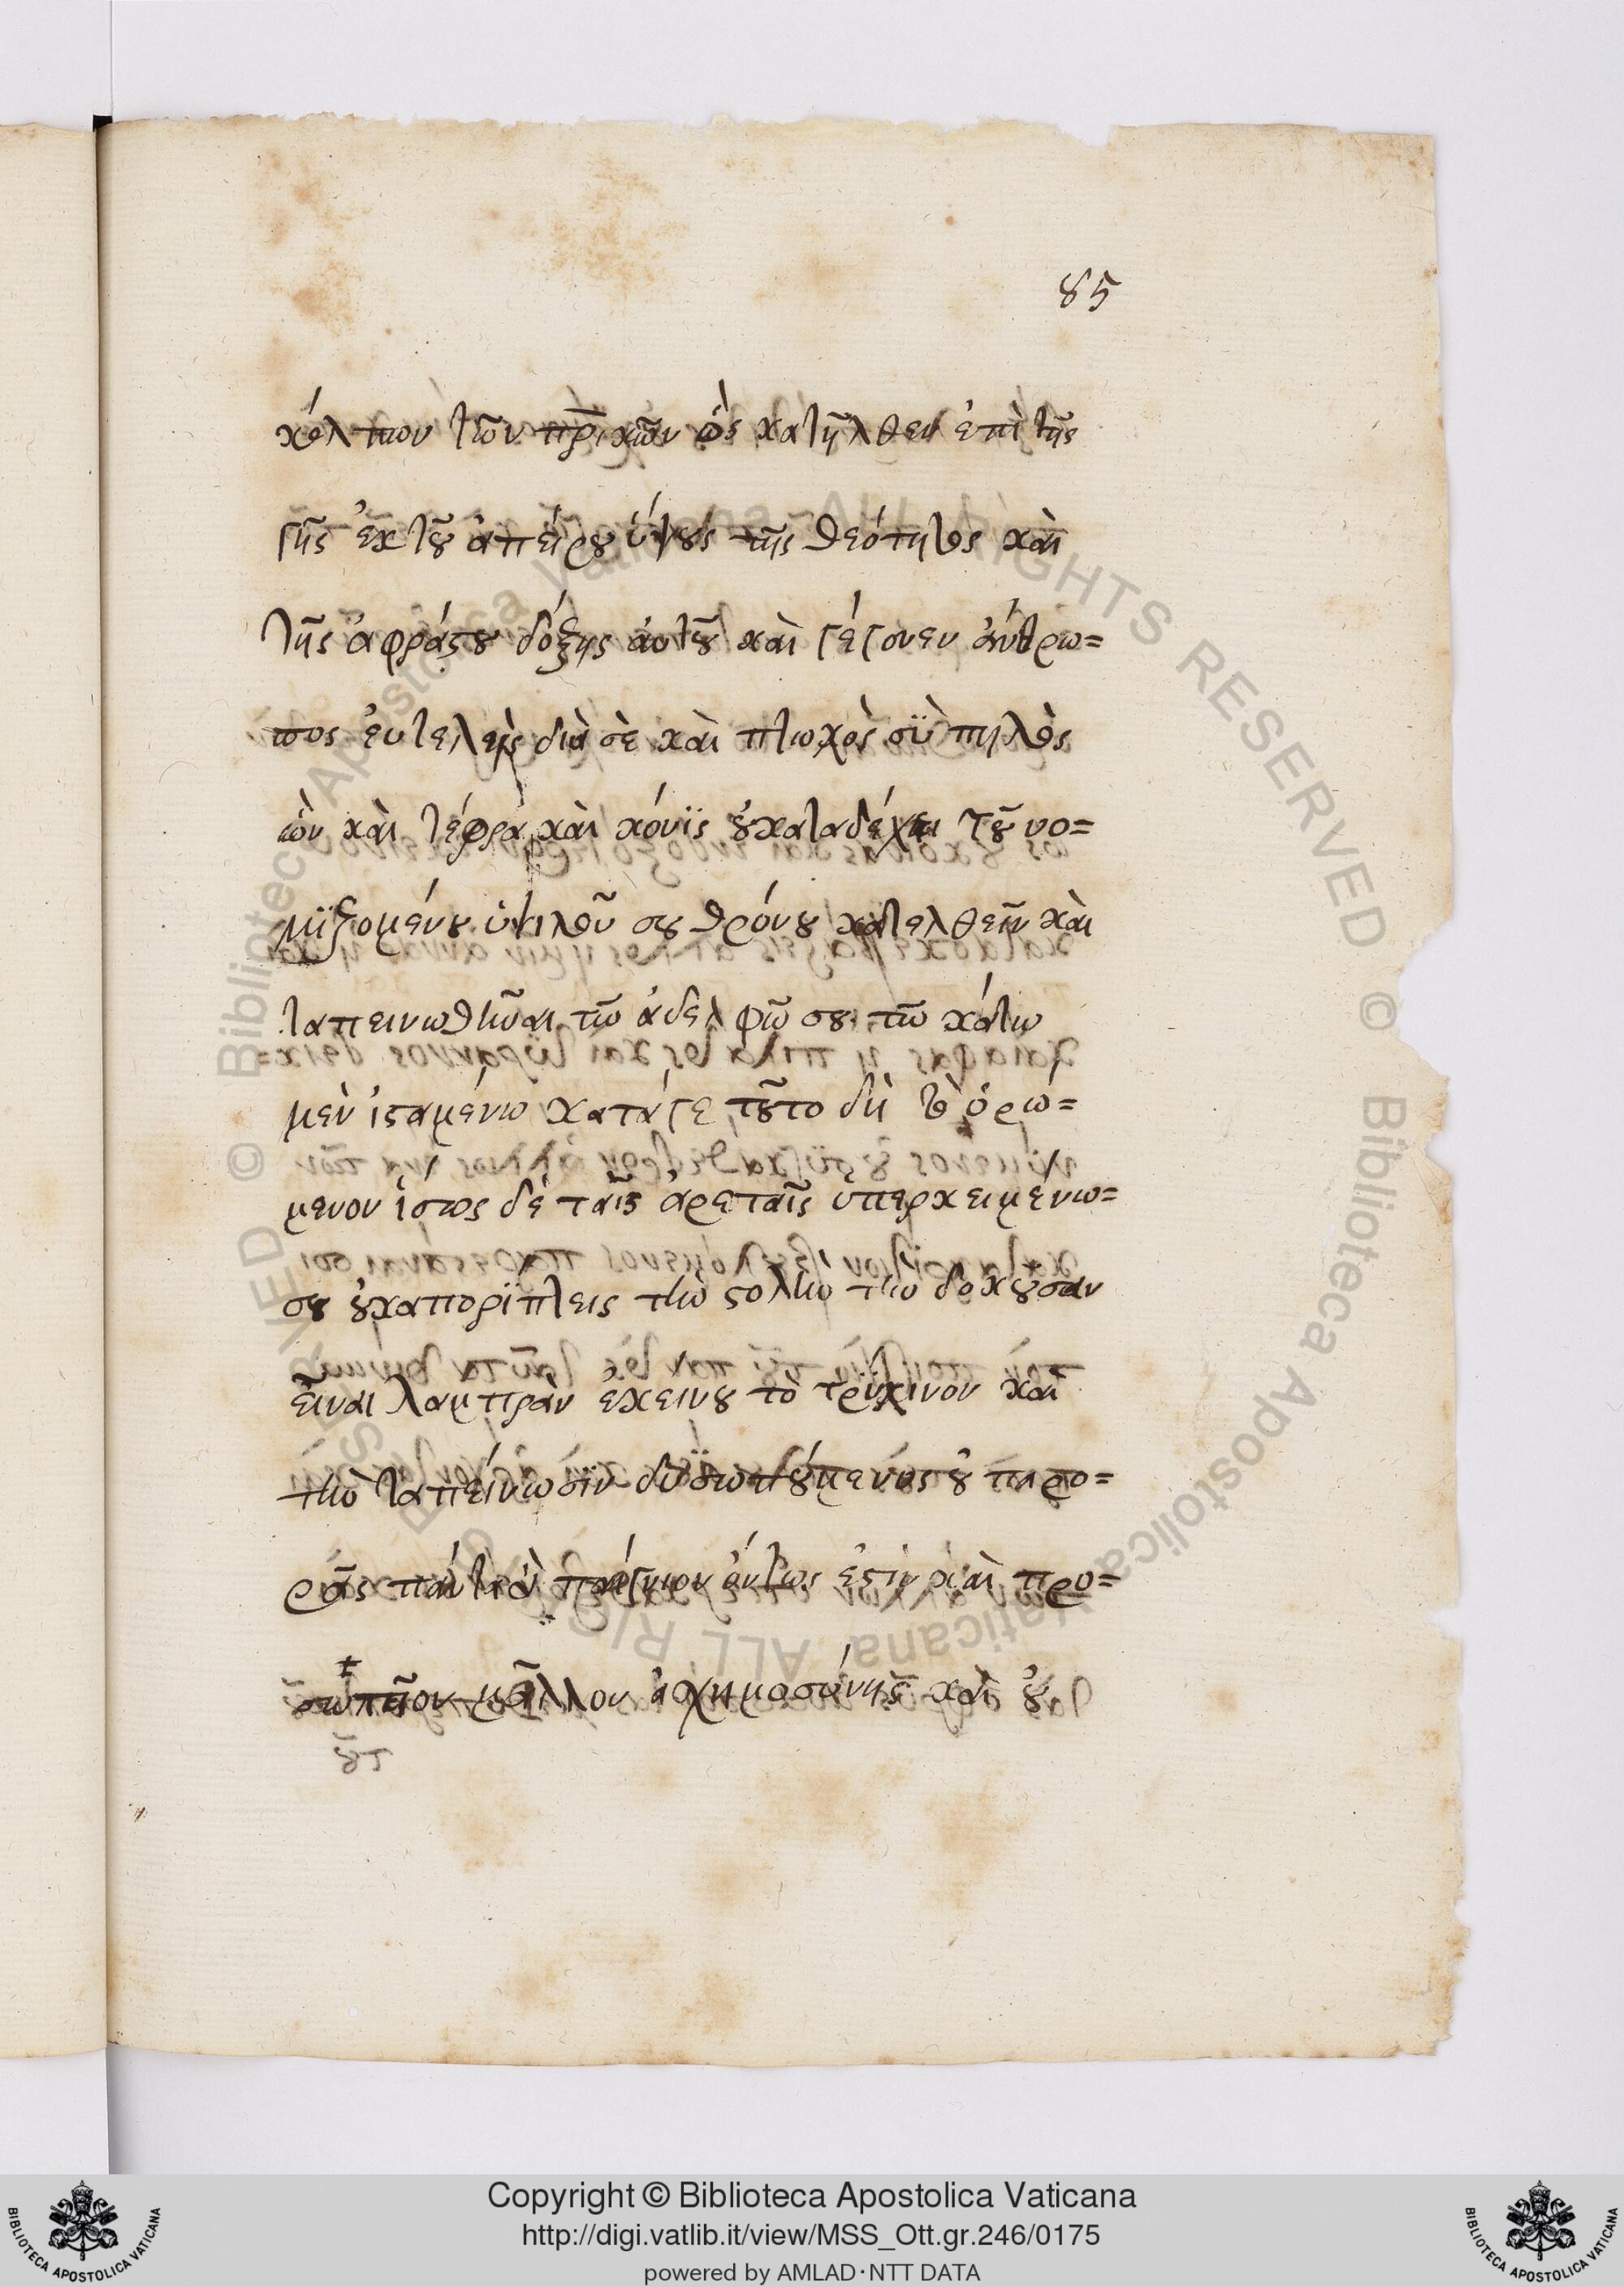 85
κόλπον τῶν πρικῶν ὃς κατῆλθεν ἐπὶ τῆς
γῆς ἐκ τοῦ ἀπείρου ὕψους τῆς θεότητος καὶ
τῆς ἀφράστου δόξης αὐτοῦ καὶ γέγονεν ἄνθρω=
πος εὐτελὴς διὰ σὲ καὶ πτωχὸς σϋ πηλὸς
ὢν καὶ τέφρα καὶ κόνϊς οὐ καταδέχει τοῦ νο=
μϊζομένου ὑψιλοῦ σου θρόνου κατελθεῖν καὶ
ταπεινωθῆναι τῶ ἀδελφῶ σου τῶ κάτω
μὲν ἱσταμένω κατά γε τοῦτο δὴ τὸ ὁρώ=
μενον ἴσως δὲ ταῖς ἀρεταῖς ὑπερκειμένω=
σου οὐκ αποριπτεις τὴν στολὴν τὴν δοκοῦσαν
εἶναι λαμπρὰν ἐκεινου τὸ τρύχινον καὶ
τὴν ταπείνωσϊν δϋσωπούμενος οὐ παρο=
ρᾶς πάντα ἃ παίγνιον ὄντως ἐστὶν καὶ προ=
σωπεῖον μᾶλλον ἀσχημοσύνης καὶ οὐ
Copyright © Biblioteca Apostolica Vaticana
http://digi.vatlib.it/view/MSS_Ott.gr.246/0175
powered by AMLAD·NTT DATA
BIBLIOTECA APOSTOLICA VATICANA
BIBLIOTECA APOSTOLICA VATICANA
© Biblioteca Apostolica Vaticana ALL RIGHTS RESERVED © Biblioteca Apostolica Vaticana ALL RIGHTS RESERVED